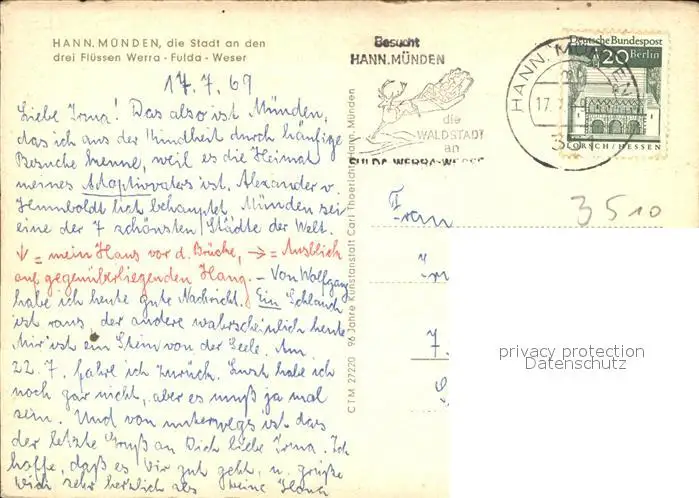 HANN. MÜNDEN, die Stadt an den
drei Flüssen Werra - Fulda - Weser
17.7.69
Liebe Irma! Das also ist Münden,
das ich aus der Kindheit durch häufige
Besuche kenne, weil es die Heimat
meines Adoptivvaters ist. Alexander v.
Humboldt hat behauptet, Münden sei
eine der 7 schönsten Städte der Welt.
↓ = mein Haus vor d. Brücke, → = Ausblick
auf gegenüberliegenden Hang. - Von Wolfgang
habe ich heute gute Nachricht. Ein Schlauch
ist raus der andere wahrscheinlich heute
Mir ist ein Stein von der Seele. Am
22.7. fahre ich zurück. Lust habe ich
noch gar nicht, aber es muß ja mal
sein. Und von unterwegs ist das
der letzte Gruß an Dich liebe Irma. Ich
hoffe, daß es Dir gut geht, u. grüße
Dich sehr herzlich als Deine Hana
CTM 27220 96 Jahre Kunstanstalt Carl Thoericht, Hann. Münden
Besucht
HANN. MÜNDEN
die
WALDSTADT
an
FULDA-WERRA-WESER
HANN. MÜNDEN
17.7.69
351
Deutsche Bundespost
20 Berlin
LORSCH/HESSEN
3510
Frau
7.
privacy protection
Datenschutz